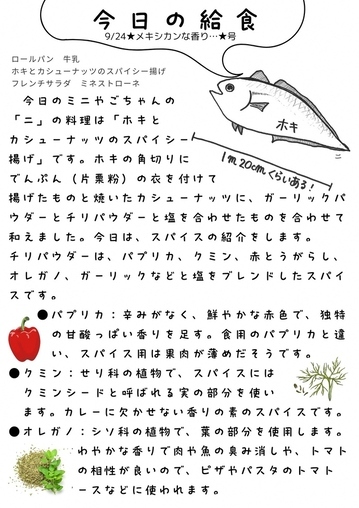 今日の給食
9/24★メキシカンな香り…★号
ロールパン　牛乳
ホキとカシューナッツのスパイシー揚げ
フレンチサラダ　ミネストローネ
今日のミニやごちゃんの
「ニ」の料理は「ホキと
カシューナッツのスパイシー
揚げ」です。ホキの角切りに
でんぷん（片栗粉）の衣を付けて
揚げたものと焼いたカシューナッツに、ガーリックパ
ウダーとチリパウダーと塩を合わせたものを合わせて
和えました。今日は、スパイスの紹介をします。
チリパウダーは、パプリカ、クミン、赤とうがらし、
オレガノ、ガーリックなどと塩をブレンドしたスパイ
スです。
ホキ
ニ
1m20cmくらいある！
●パプリカ：辛みがなく、鮮やかな赤色で、独特
の甘酸っぱい香りを足す。食用のパプリカと違
い、スパイス用は果肉が薄めだそうです。
●クミン：せり科の植物で、スパイスには
クミンシードと呼ばれる実の部分を使い
ます。カレーに欠かせない香りの素のスパイスです。
●オレガノ：シソ科の植物で、葉の部分を使用します。
わやかな香りで肉や魚の臭み消しや、トマト
の相性が良いので、ピザやパスタのトマト
ースなどに使われます。